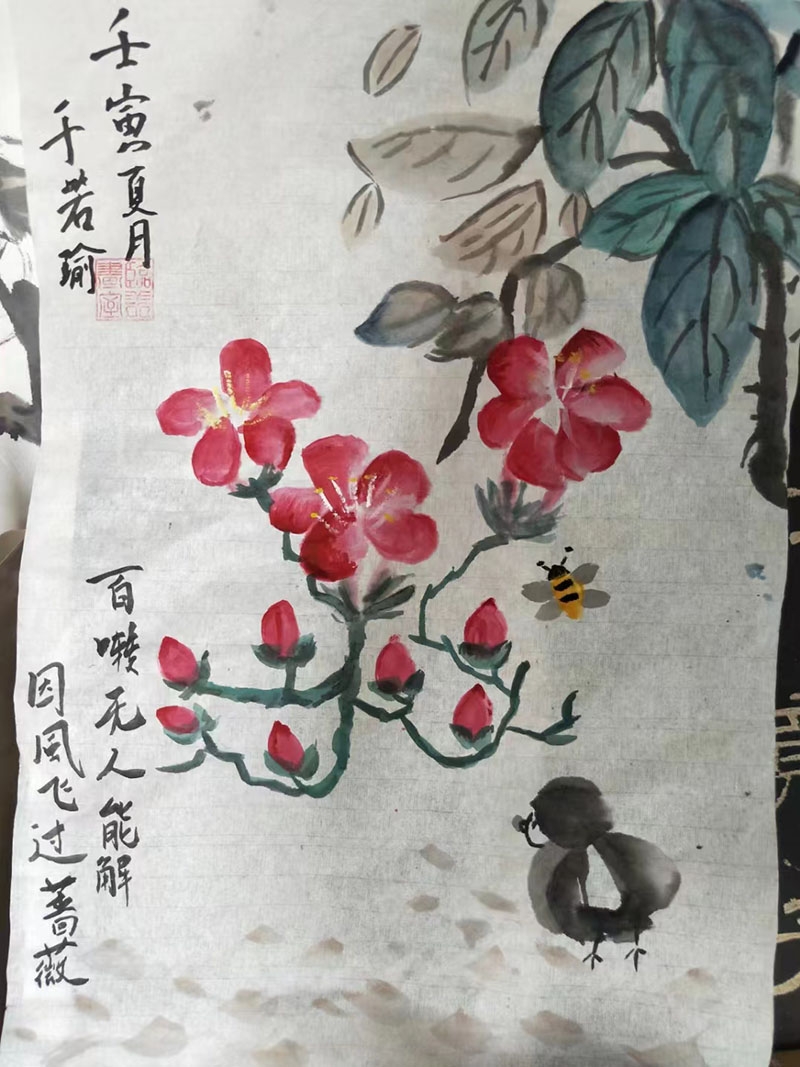 壬寅夏月
千若瑜
百囀无人能解
因風飞过蔷薇